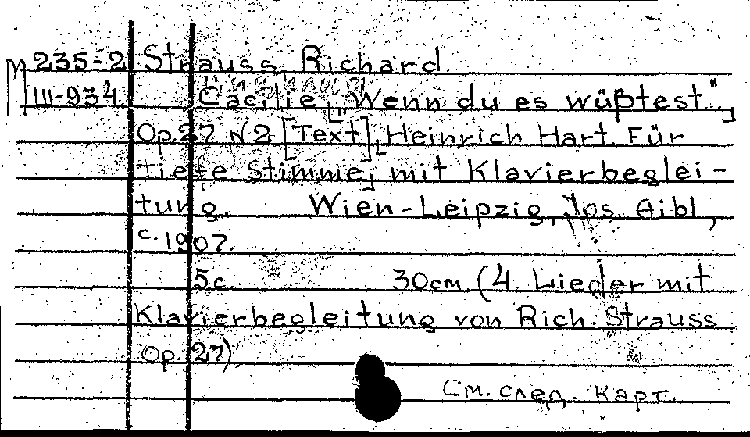 М 235-2 Strauss Richard
III-934 Cäcilie „Wenn du es wüßtest"
Op.27 N2 [Text] Heinrich Hart. Für
tiefe Stimme mit Klavierbeglei-
tung. Wien-Leipzig, Jos. Aibl,
c. 1907.
5c. 30cm. (4. Lieder mit
Klavierbegleitung von Rich. Strauss
Op. 27)
См. след. карт.